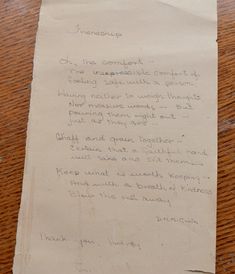 Friendship
Oh, the comfort -
The inexpressible comfort of
feeling safe with a person.
Having neither to weigh thoughts
Nor measure words - But
pouring them right out -
just as they are -
Chaff and grain together -
Certain that a faithful hand
will take and sift them -
Keep what is worth keeping -
And with a breath of kindness
Blow the rest away
Thank you,